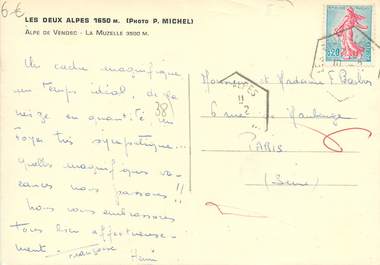 6 €
LES DEUX ALPES 1650 M. (PHOTO P. MICHEL)
ALPE DE VENOSC - LA MUZELLE 3500 M.
0,20
ALPES
11
2
38
Un cadre magnifique
un temps idéal, de la
neige en quantité, un
foyer très sympathique...
quelles magnifiques va-
cances nous passons !!
Nous vous embrassons
tous bien affectueuse-
ment. Françoise Henri
Monsieur et Madame F.
6 rue de Maubeuge
PARIS
(Seine)